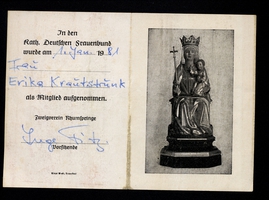 In den
Kath. Deutschen Frauenbund
wurde am 1. Jan. 1981
Frau
Erika Krautstrunk
als Mitglied aufgenommen.
Zweigverein Rhumspringe
Inge Fitz
Vorsitzende